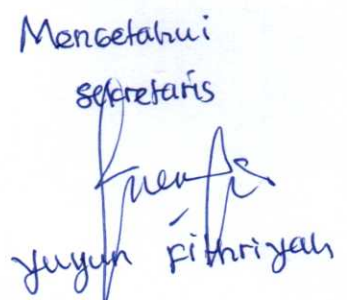 Mengetahui
sekretaris
yuyun Fithriyah